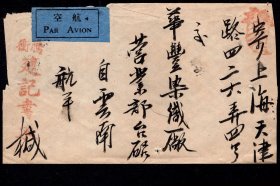 寄上海天津
路四二六弄四号
交
華豐染織廠
营業部台啟
自雲南
航羊
緘
航空
PAR AVION
記書